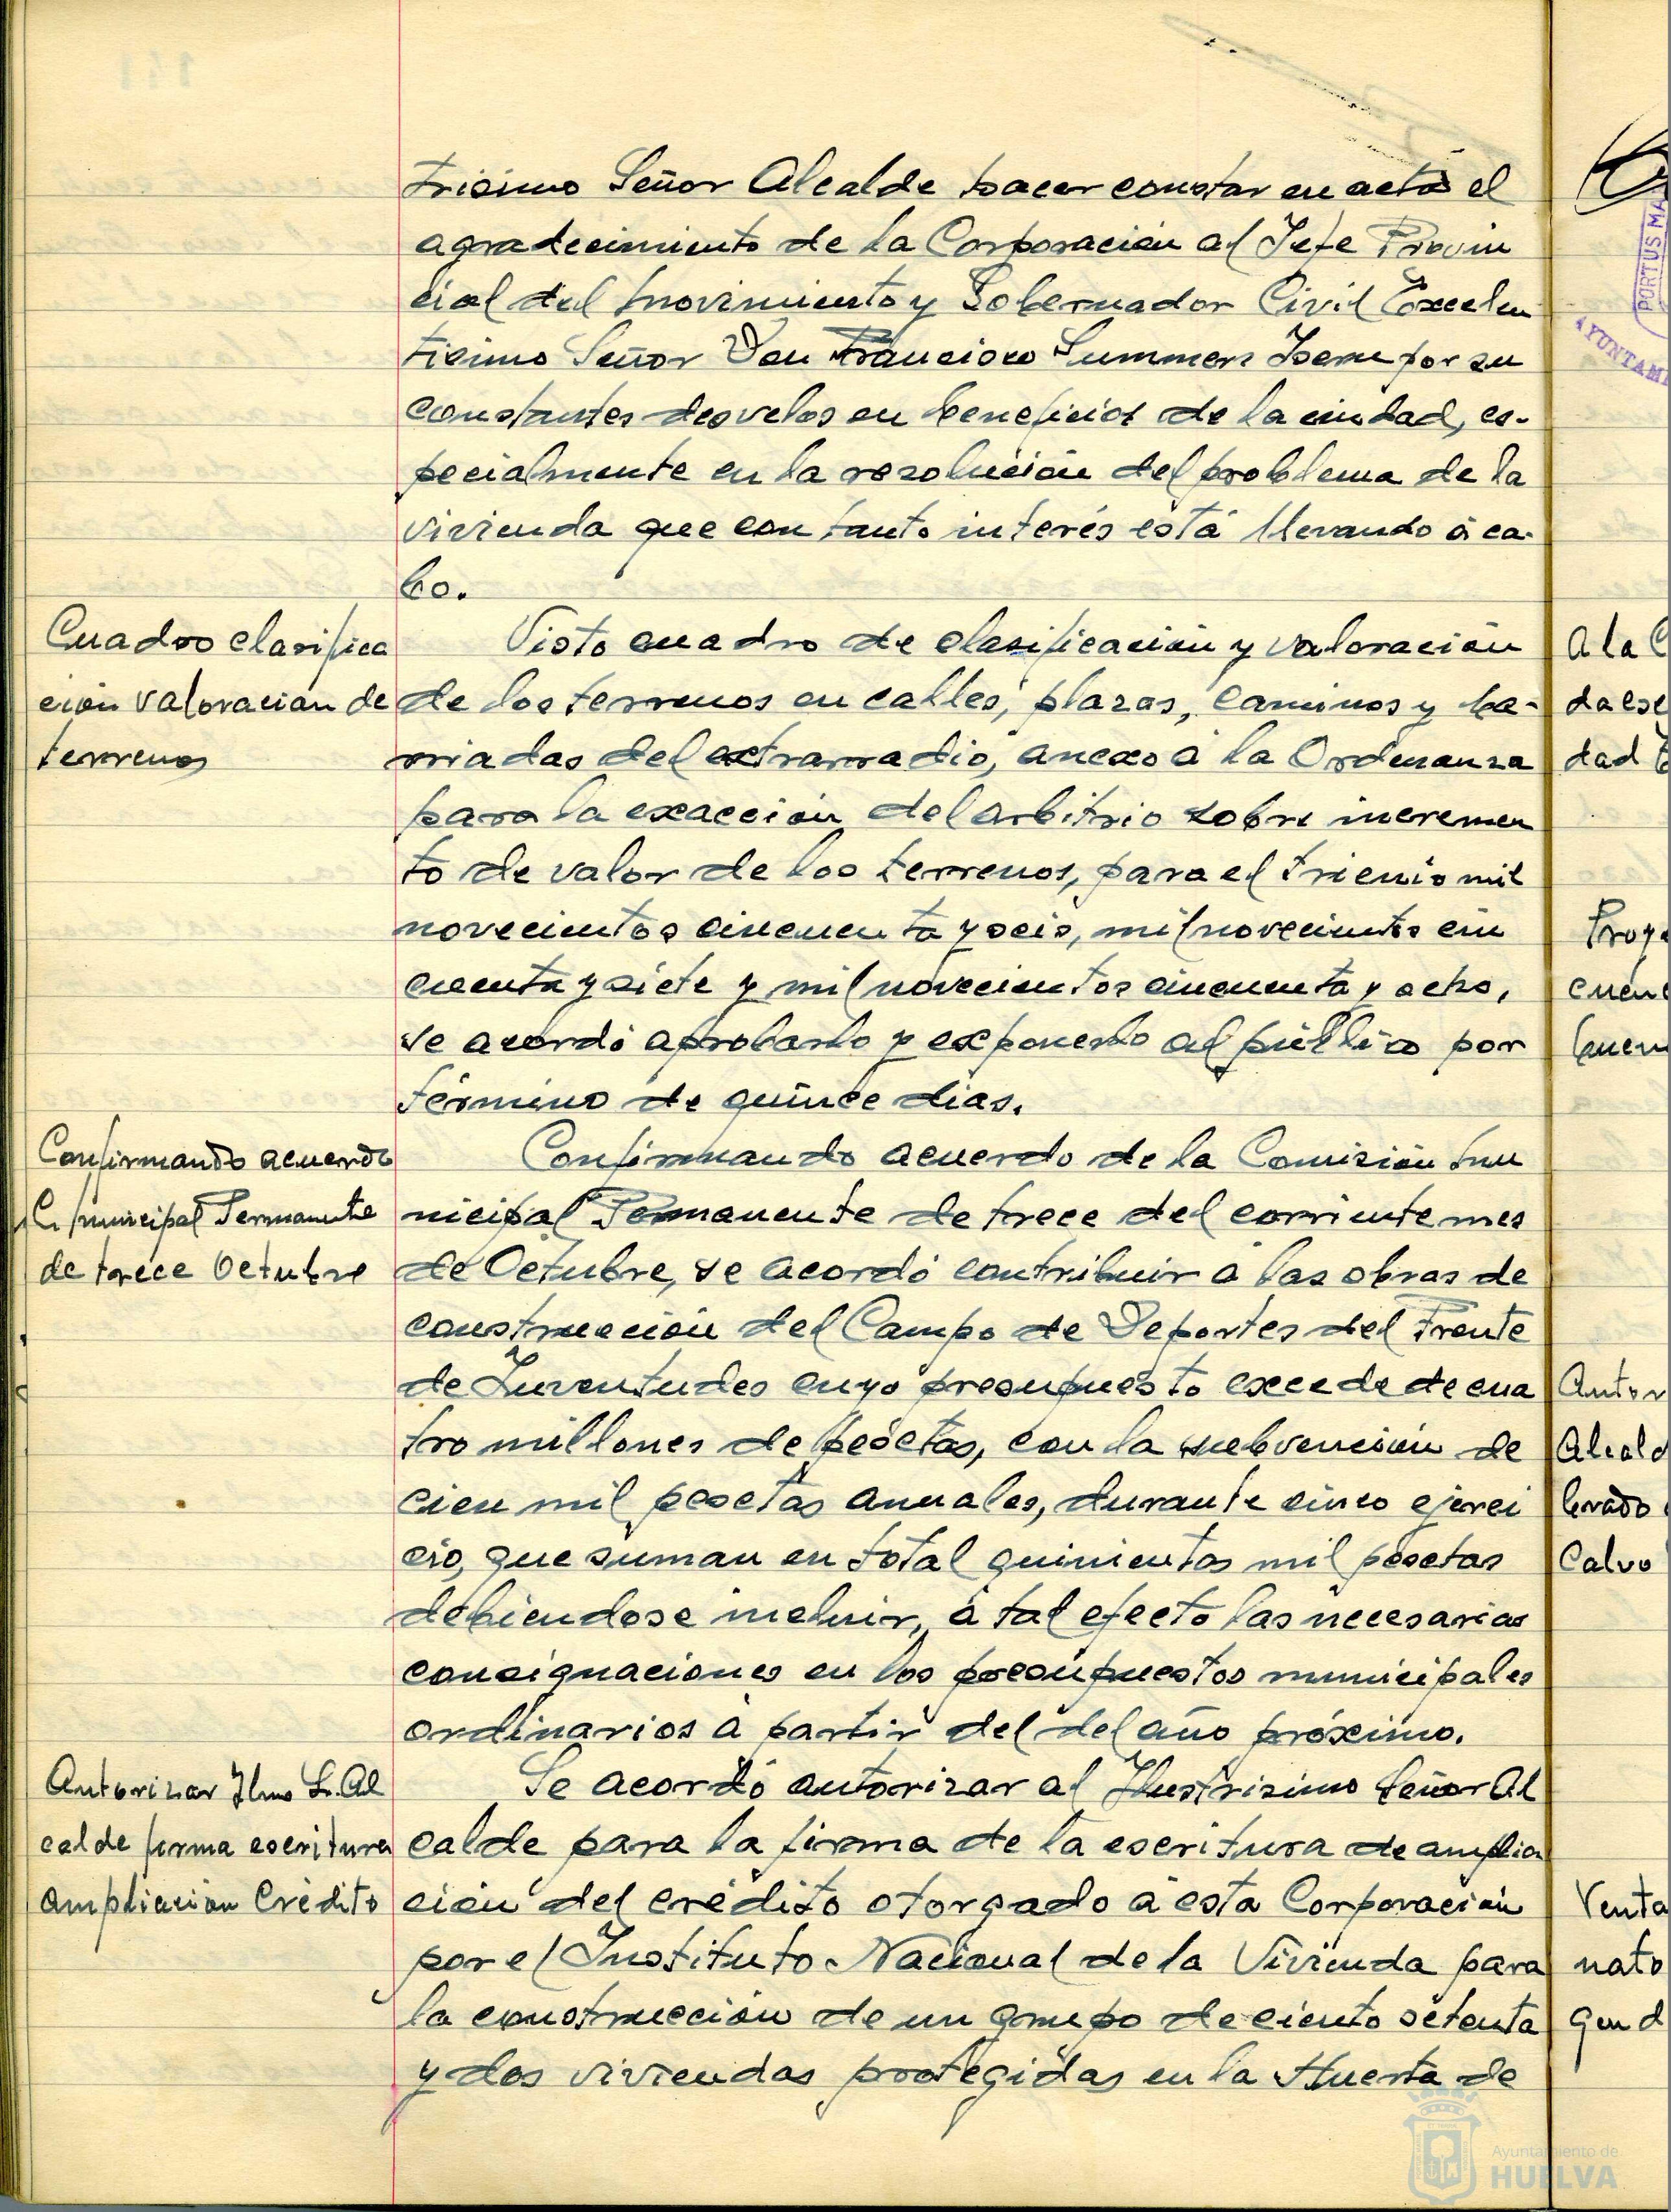 trisimo Señor Alcalde hacer constar en acta el
agradecimiento de la Corporación al Jefe Provin
cial del Movimiento y Gobernador Civil Excelen
tisimo Señor Don Francisco Summers Isern por su
constantes desvelos en beneficios de la ciudad, es-
pecialmente en la resolución del problema de la
vivienda que con tanto interés está llevando á ca-
bo.
Cuadro clasifica
ción valoración de
terrenos
Visto cuadro de clasificación y valoración
de los terrenos en calles, plazas, caminos y ba-
rriadas del extrarradio, anexo á la Ordenanza
para la exacción del arbitrio sobre incremen
to de valor de los terrenos, para el trienio mil
novecientos cincuenta y seis, mil novecientos cin
cuenta y siete y mil novecientos cincuenta y ocho,
se acordó aprobarlo y exponerlo al público por
término de quince dias.
Confirmando acuerdo
C. Municipal Permanente
de trece Octubre
Confirmando acuerdo de la Comisión Mu
nicipal Permanente de trece del corriente mes
de Octubre, se acordó contribuir á las obras de
construcción del Campo de Deportes del Frente
de Juventudes cuyo presupuesto excede de cua
tro millones de pesetas, con la subvención de
cien mil pesetas anuales, durante cinco ejerci
cio, que suman en total quinientas mil pesetas
debiendose incluir, á tal efecto las necesarias
consignaciones en los presupuestos municipales
ordinarios á partir del del año próximo.
Autorizar Ilmo Sr. Al
calde firma escritura
ampliación Crédito
Se acordó autorizar al Ilustrisimo Señor Al
calde para la firma de la escritura de amplia
ción del crédito otorgado á esta Corporación
por el Instituto Nacional de la Vivienda para
la construcción de un grupo de ciento setenta
y dos viviendas protegidas en la Huerta de
PORTUS MA
AYUNTAM
A la C
da ese
dad
Proye
cuenc
buen
Autor
Alcald
brado
Calvo
Venta
nato
gen d
Ayuntamiento de
HUELVA